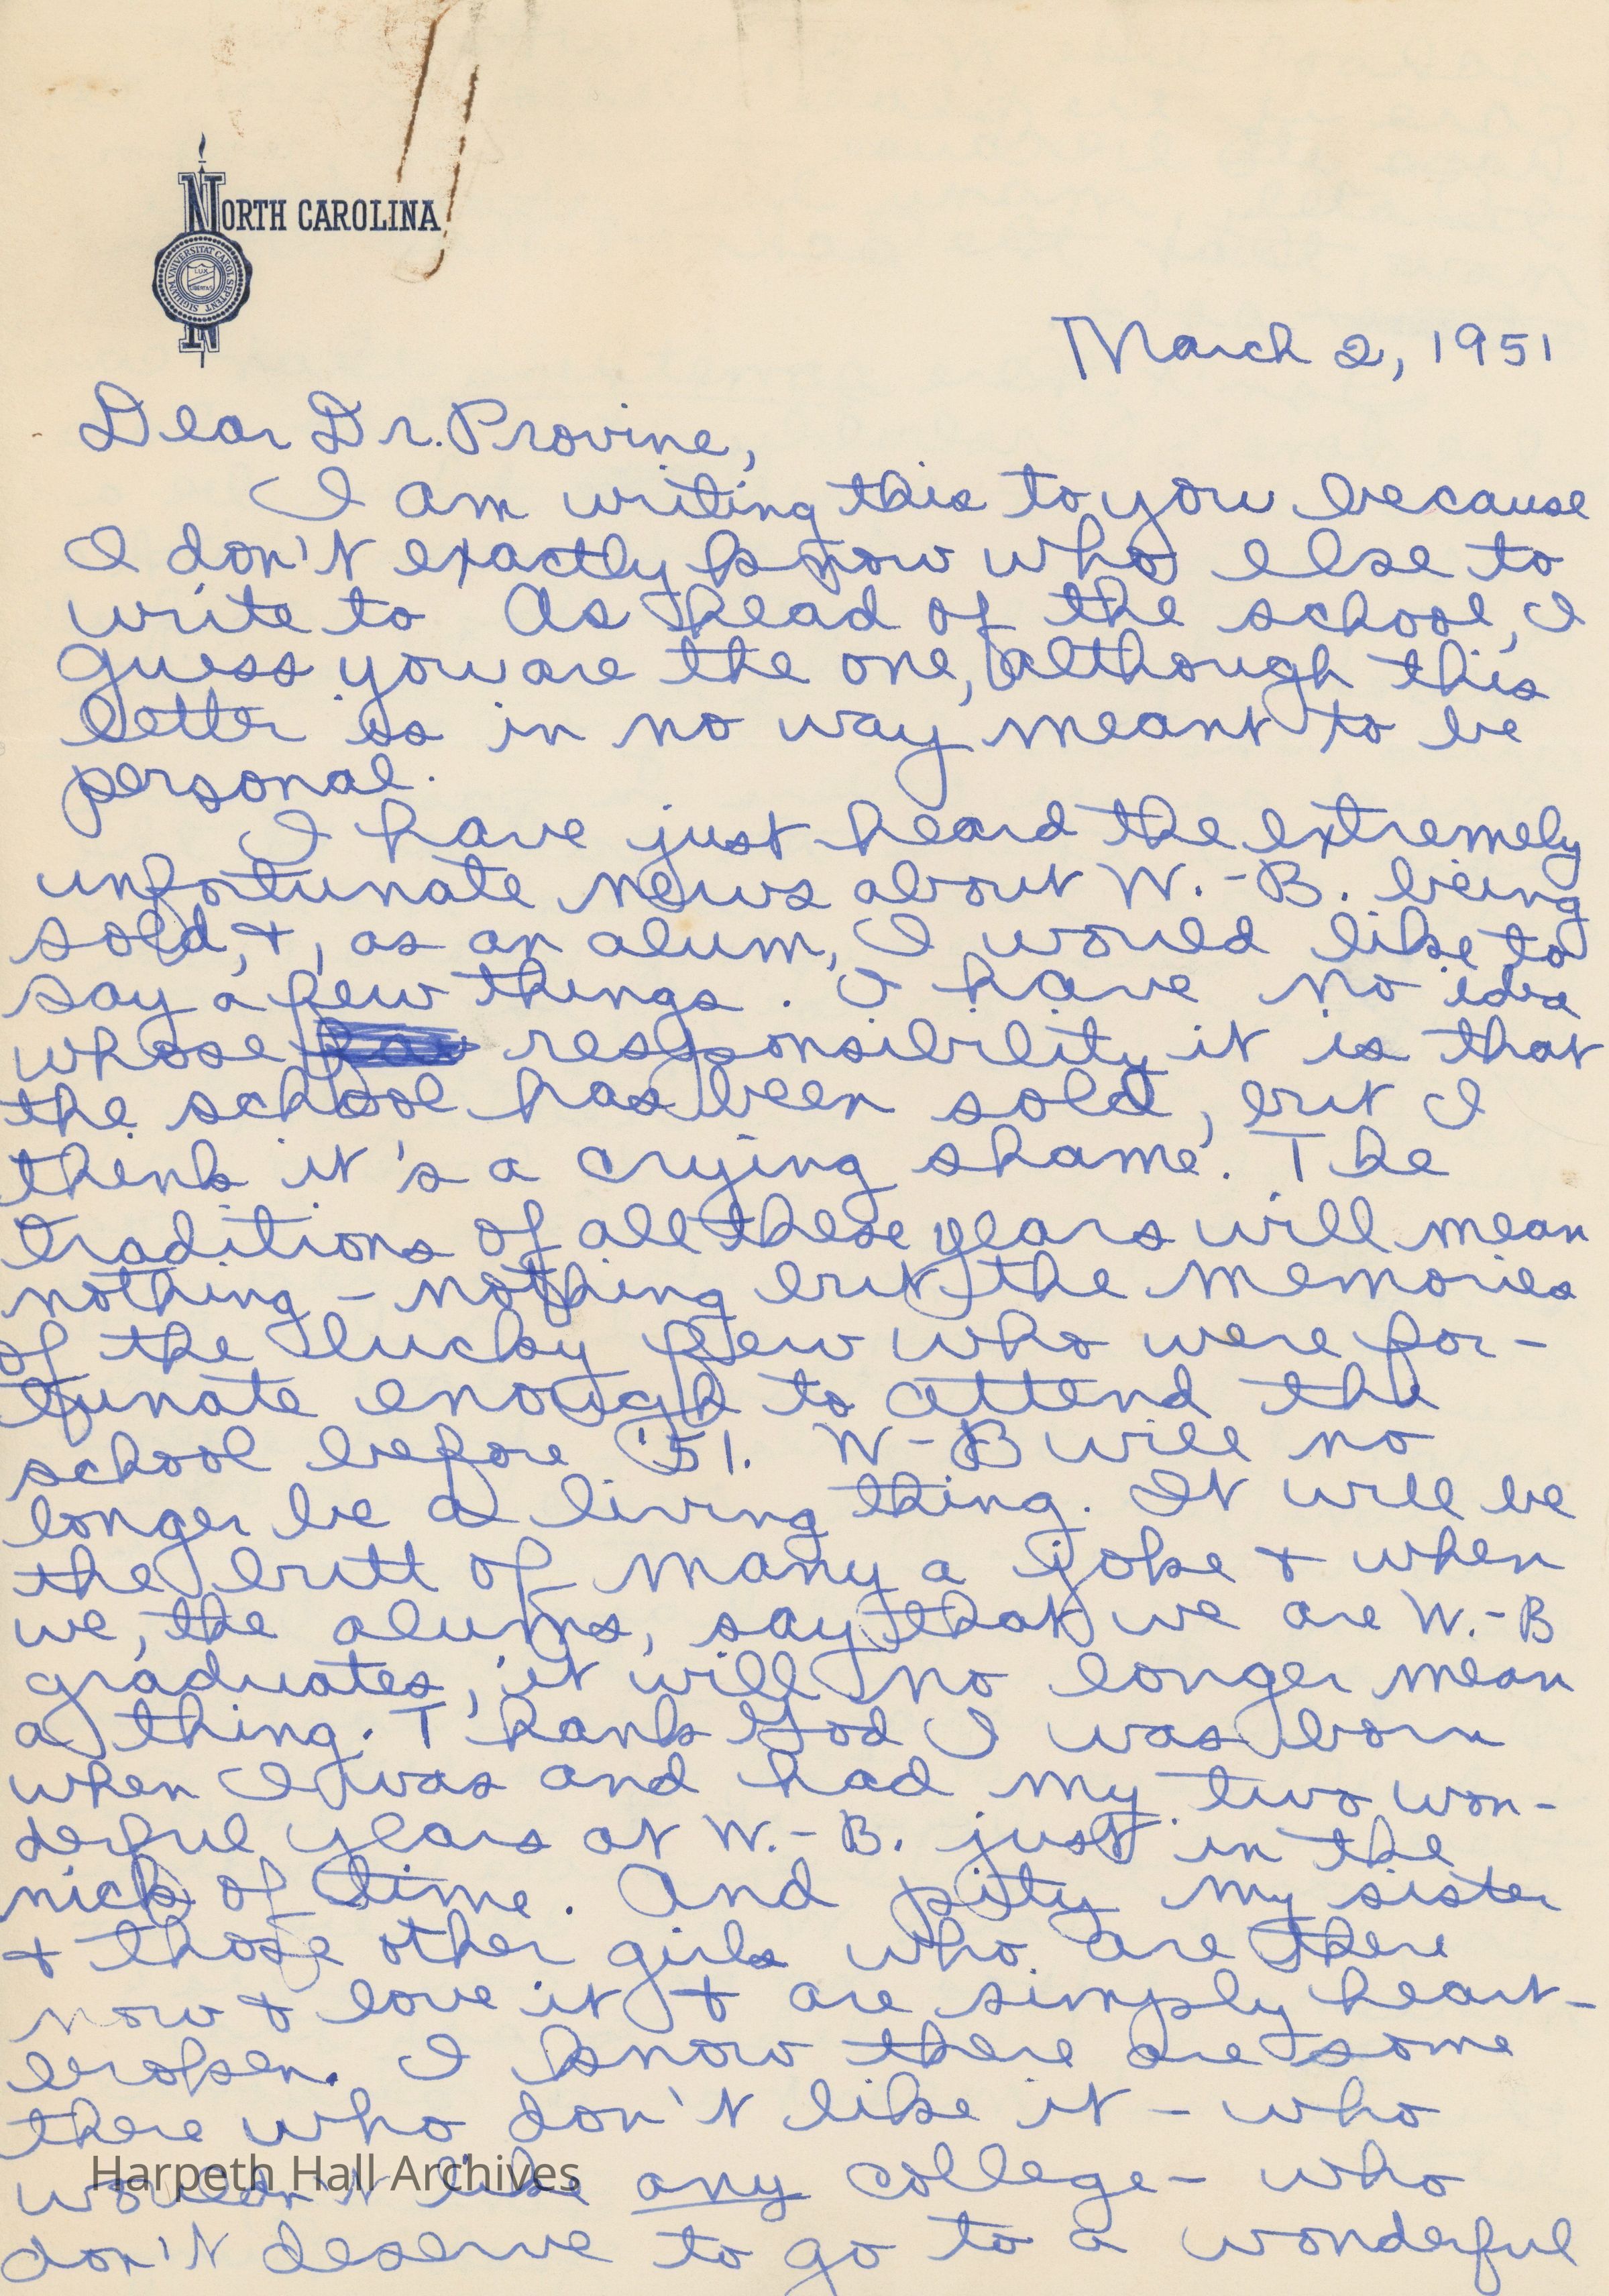 NORTH CAROLINA
SIGILLVM VNIVERSITAT CAROL SEPTENT
LUX
LIBERTAS
March 2, 1951
Dear Dr. Provine,
I am writing this to you because
I don't exactly know who else to
write to As head of the school, I
guess you are the one, although this
letter is in no way meant to be
personal.
I have just heard the extremely
unfortunate news about W.-B. being
sold, +, as an alum, I would like to
say a few things. I have no idea
whose responsibility it is that
the school has been sold, but I
think it's a crying shame. The
traditions of all these years will mean
nothing - nothing but the memories
of the lucky few who were for-
tunate enough to attend the
school before '51. W-B will no
longer be a living thing. It will be
the butt of many a joke + when
we, the alums, say that we are W.-B
graduates, it will no longer mean
a thing. Thank God I was born
when I was and had my two won-
derful years at W.-B. just in the
nick of time. And pity my sister
+ those other girls who are there
now + love it + are simply heart-
broken. I know there are some
there who don't like it - who
wouldn't like any college - who
don't deserve to go to a wonderful
Harpeth Hall Archives